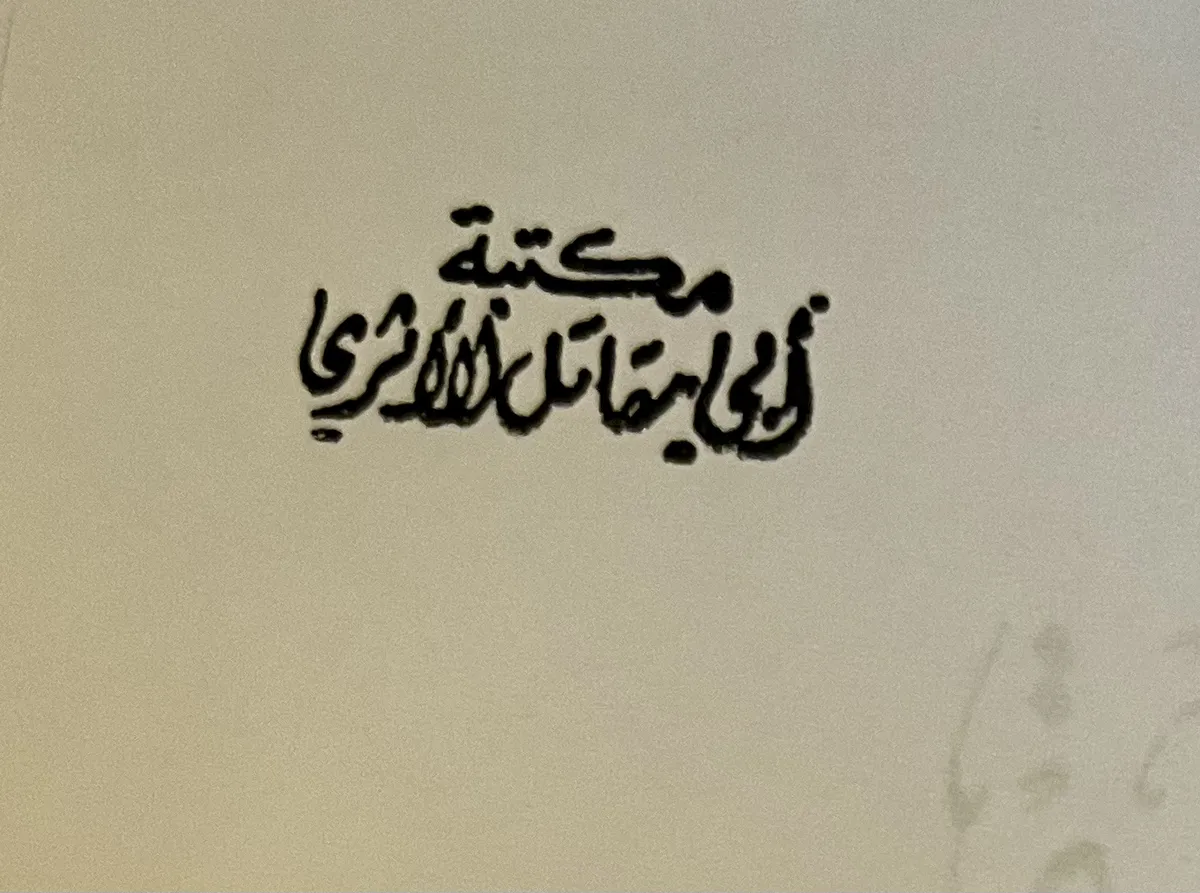 مكتبة
أبي مقاتل الأثري